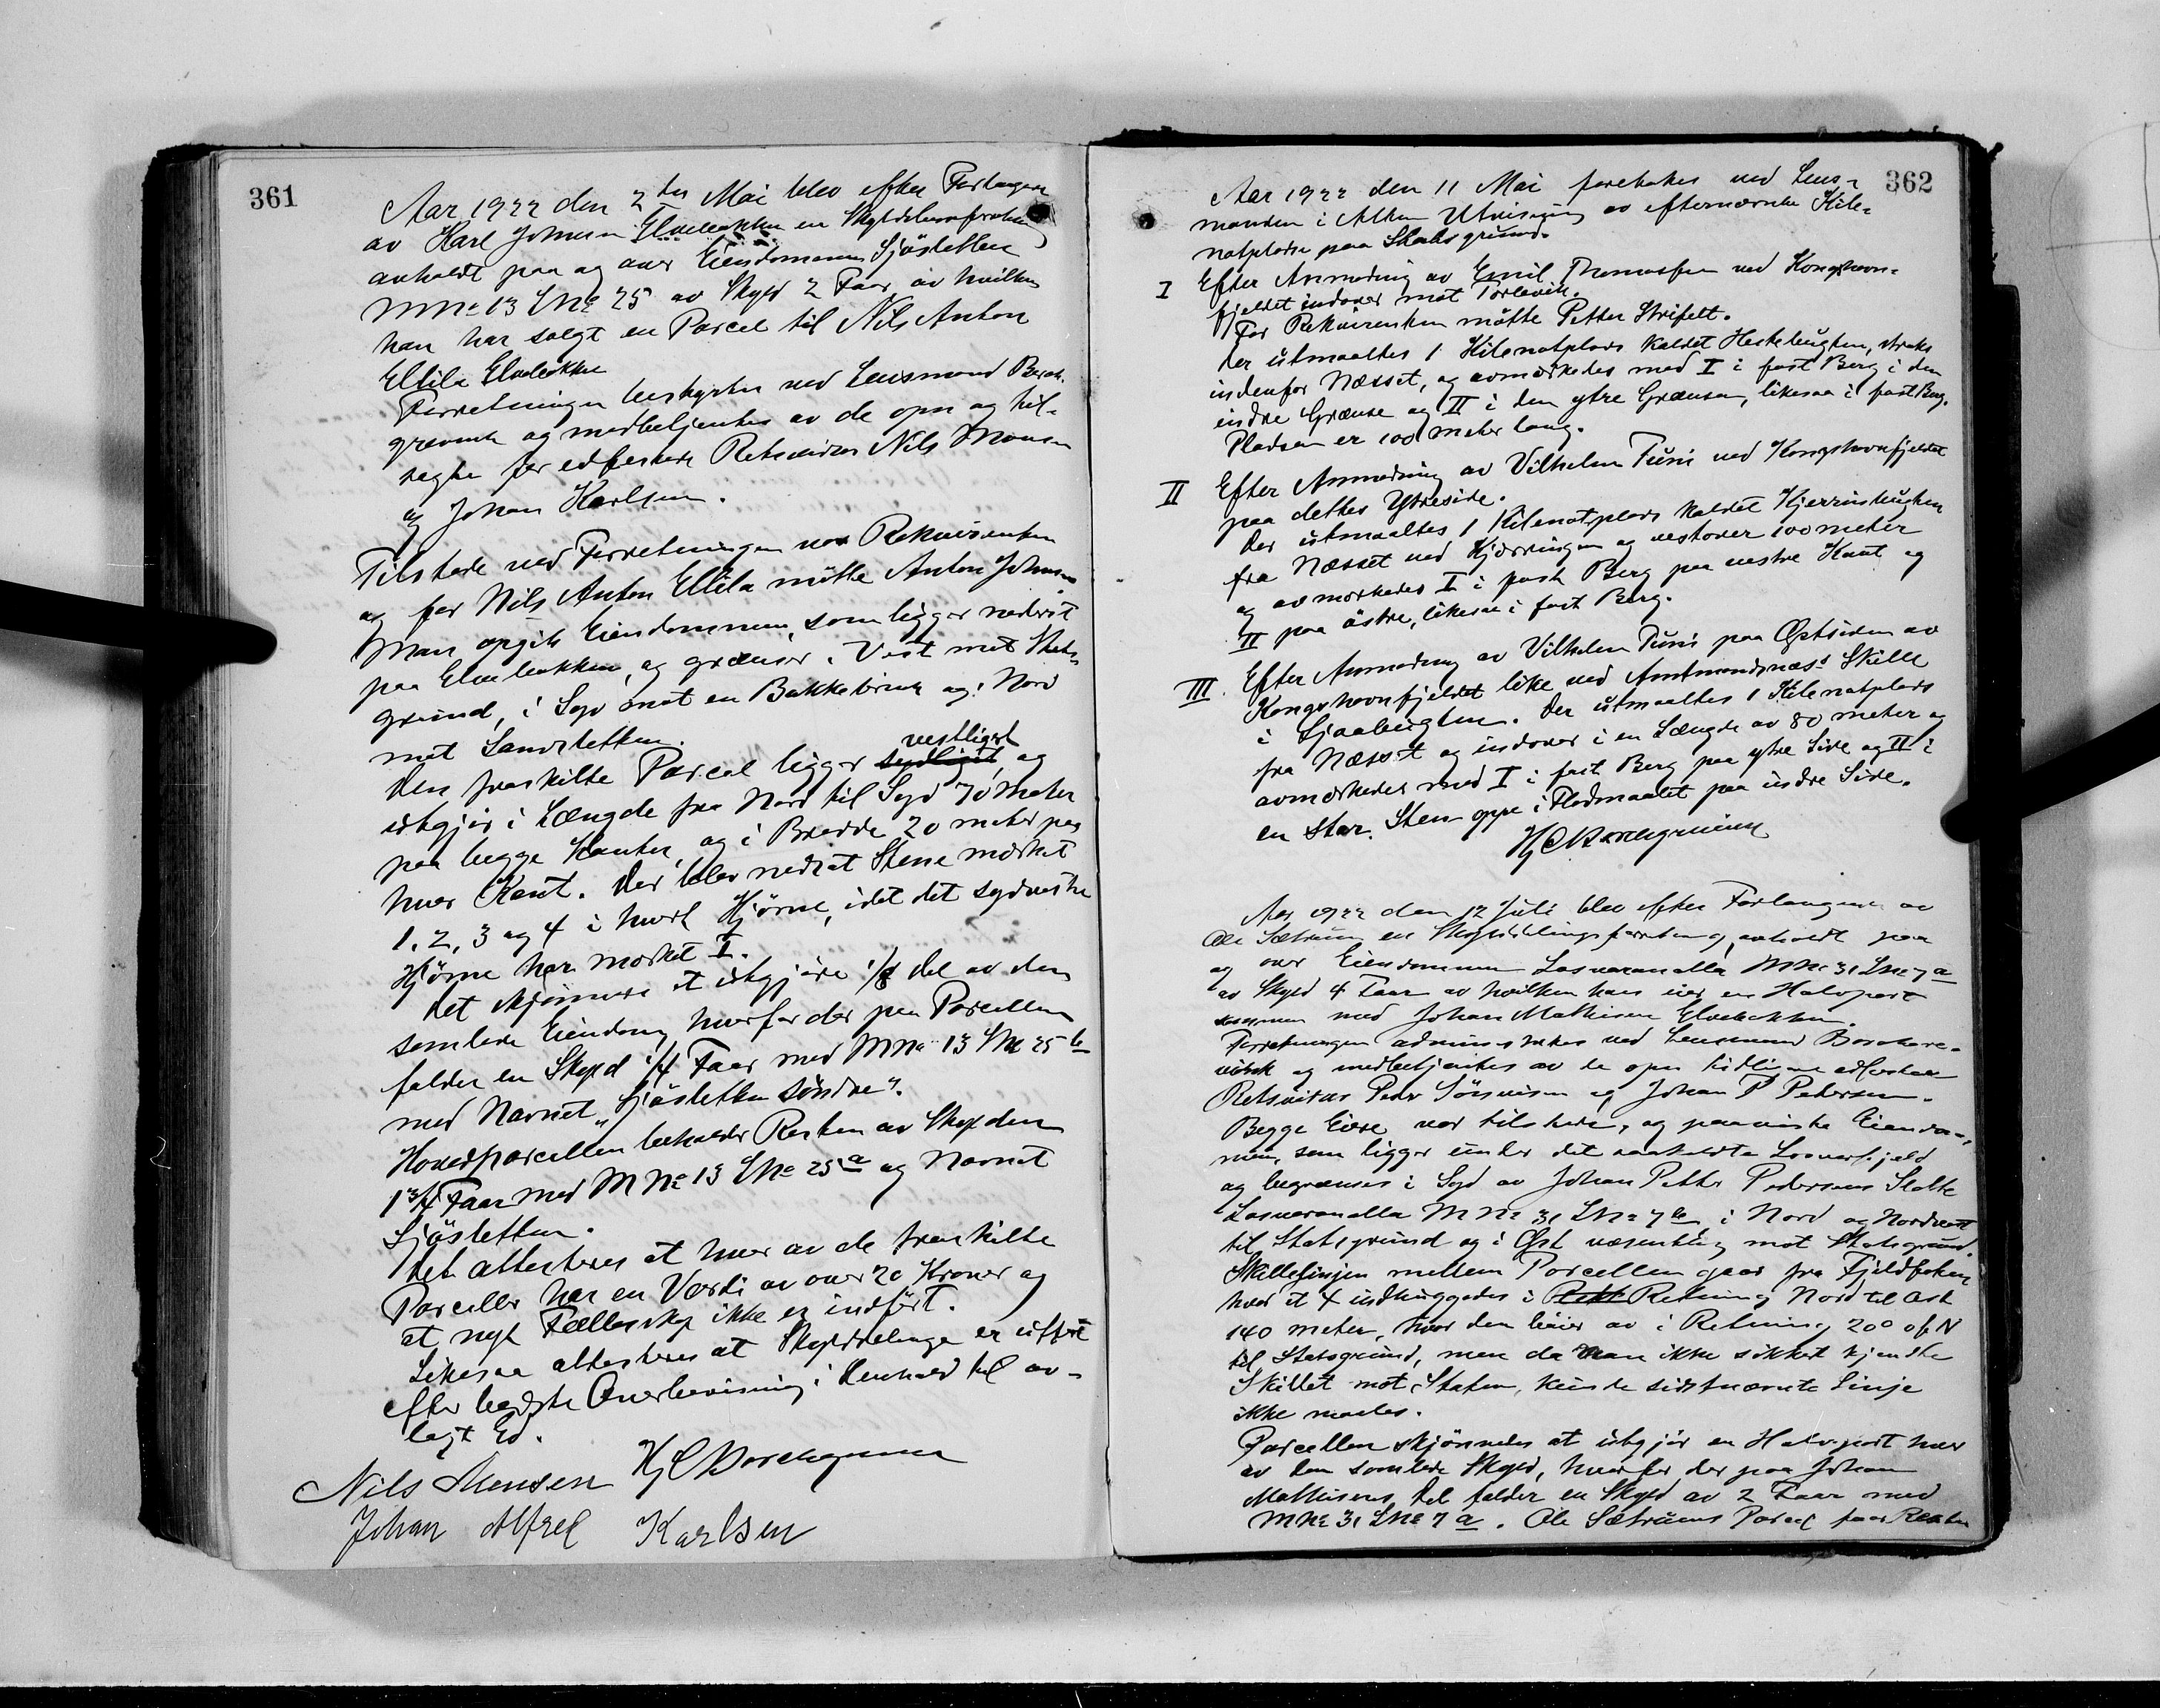 361
Aar 1922 den 2den Mai blev efter Forlangen
av Karl Johnsen Elvebakken en Skylddelingsforretning
avholdt paa og over Eiendommen Sjösletten
M No 13 L No 25 av Skyld 2 Faar, av hvilken
han har solgt en Parcel til Nils Anton
Ellila Elvebakken
Forretningen bestyrtes ved Lensmand Borch-
grevink og medbetjentes av de opn og til-
sagte før edfæstede Retsvidner Nils Monsen
og Johan Karlsen.
Tilstede ved Forretningen var Rekvirenten
og for Nils Anton Ellila mötte Anton Johnsen
Man opgik Eiendommen, som ligger nederst
paa Elvebakken, og grænser i Vest mot Stats-
grund, i Syd mot en Bakkebrink og i Nord
mot Sandsletten.
vestligst
Den fraskilte Parcel ligger sydligst, og
utgjør i Længde fra Nord til Syd 70 Meter
paa begge Kanter, og i Bredde 20 meter paa
hver Kant. Der blev nedsat Stene merket
1, 2, 3 og 4 i hvert Hjörne, idet det sydvestre
Hjörne har merket I.
Det skjönnedes at utgjöre 1/8 del av den
samlede Eiendom, hvorfor der paa Parcellen
falder en Skyld 1/4 Faar med M No 13 L No 25 b
med Navnet "Sjösletten söndre".
Hovedparcellen beholder Resten av Skylden
1 3/4 Faar med M No 13 L No 25 a og Navnet
Sjösletten.
Det attesteres at hver av de fraskilte
Parceller har en Værdi av over 20 Kroner og
at nyt Fællesskap ikke er indfört.
Likesaa attesteres at Skylddelinge er utfört
efter bedste Overbevisning i Henhold til av-
lagt Ed.
HjCBorchgrevink
Nils Monsen
Johan Alfred Karlsen
362
Aar 1922 den 11 Mai foretokes ved Lens-
manden i Alten Utvisning av efternævnte Kile-
notpladse paa Statsgrund.
I Efter Anmodning av Emil Thomassen ved Kongshavn-
fjeldet indover mot Torlevik.
For Rekvirenten mötte Petter Strifelt.
Der utmaaltes 1 Kilenotplads kaldet Hestebugten, straks
indenfor Næsset, og avmerkedes med I i fast Berg i den
indre Grænse og II i den ytre Grænse, likesaa i fast Berg.
Pladsen er 100 meter lang.
II Efter Anmodning av Vilhelm Furi ved Kongshavnfjeldet
paa dettes Ytreside.
Der utmaaltes 1 Kilenotplads kaldet Kjerringbugten
fra Næsset ved Kjerringen og vestover 100 meter
og avmerkedes I i fast Berg paa vestre Kant og
II paa östre, likesaa i fast Berg.
III. Efter Anmodning av Vilhelm Furi paa Østsiden av
Kongshavnfjeldet like ved Amtmandsnæs's Skille
i Sjaabugten. Der utmaaltes 1 Kilenotplads
fra Næsset og indover i en Længde av 80 meter og
avmerkedes med I i fast Berg paa ytre Side og II i
en stor Sten oppe i Flodmaalet paa indre Side.
HjCBorchgrevink
Aar 1922 den 12 Juli blev efter Forlangende av
Ole Sætrum en Skylddelingsforretning avholdt paa
og over Eiendommen Lasvaranalla M No 31 L No 7 a
av Skyld 4 Faar av hvilken han eier en Halvpart
sammen med Johan Mathisen Elvebakken.
Forretningen administrertes ved Lensmand Borchgre-
vink og medbetjentes av de opn tidligere edfæstede
Retsvitner Peder Sörensen og Johan P Pedersen.
Begge Eiere var tilstede, og paaviste Eiendom-
men, som ligger under det saakaldte Lasvarfjeld
og begrænses i Syd av Johan Petter Pedersens Slaatte
Lasvaranalla M No 31 L No 7 b, i Nord og Nordvest
til Statsgrund og i Øst væsentlig mot Statsgrund.
Skillelinjen mellem Parcellen gaar fra Fjeldfoten
hvor et X indhuggedes i Rekt Retning Nord til Öst
140 meter, hvor den böier av i Retning 20° Ø f N
til Statsgrund, men da man ikke sikkert kjendte
Skillet mot Staten, kunde sidstnævnte Linje
ikke maales.
Parcellen skjönnedes at utgjör en Halvpart hver
av den samlede Skyld, hvorfor der paa Johan
Mathisens Del falder en Skyld av 2 Faar med
M No 31 L No 7 a. Ole Sætrums Parcel faar Resten